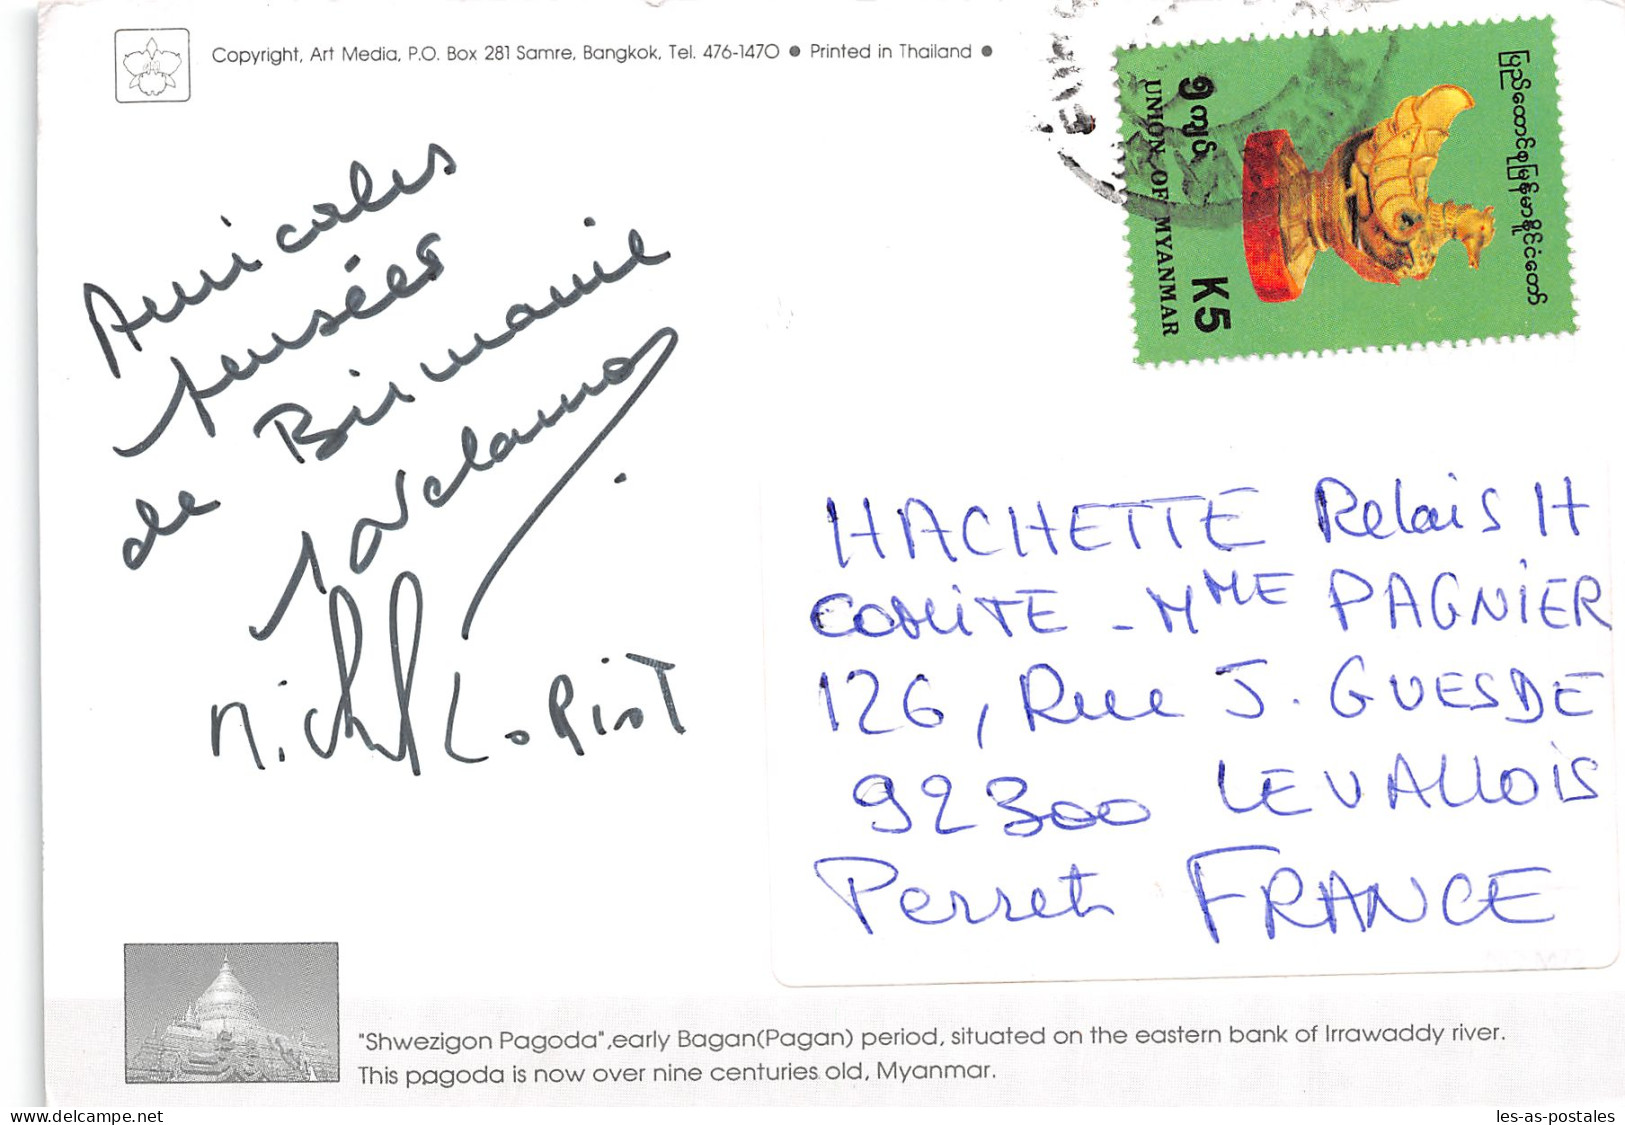 Copyright, Art Media, P.O. Box 281 Samre, Bangkok, Tel. 476-1470 ● Printed in Thailand ●
ပြည်ထောင်စုမြန်မာနိုင်ငံတော်
၅ကျပ်
UNION OF MYANMAR
K5
Amicales
pensées
de Birmanie
HACHETTE Relais H
COMITE - MME PAGNIER
126, Rue J. GUESDE
92300 LEVALLOIS
Perret FRANCE
"Shwezigon Pagoda",early Bagan(Pagan) period, situated on the eastern bank of Irrawaddy river.
This pagoda is now over nine centuries old, Myanmar.
delcampe.net
les-as-postales